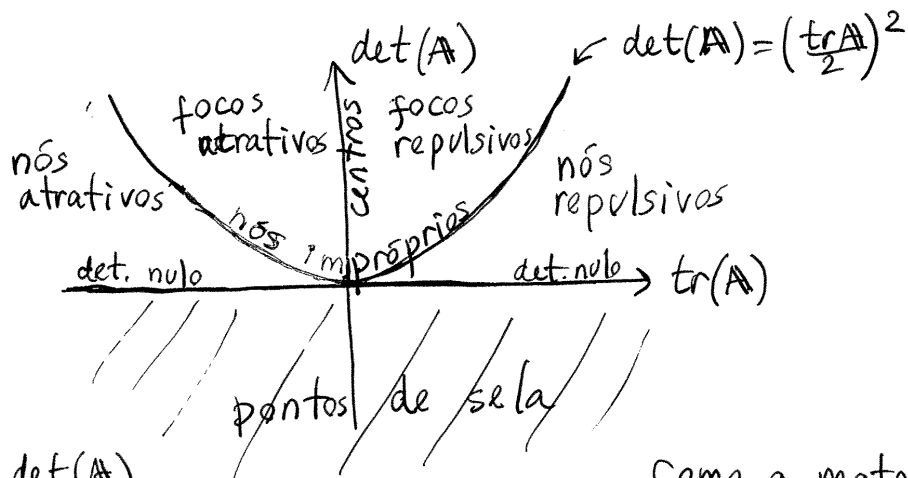 det(𝔸)
det(𝔸) = (tr𝔸/2)²
focos atrativos
centros
focos repulsivos
nós atrativos
nós repulsivos
nós impróprios
det. nulo
det. nulo
tr(𝔸)
pontos de sela
det(𝔸)
como a mat